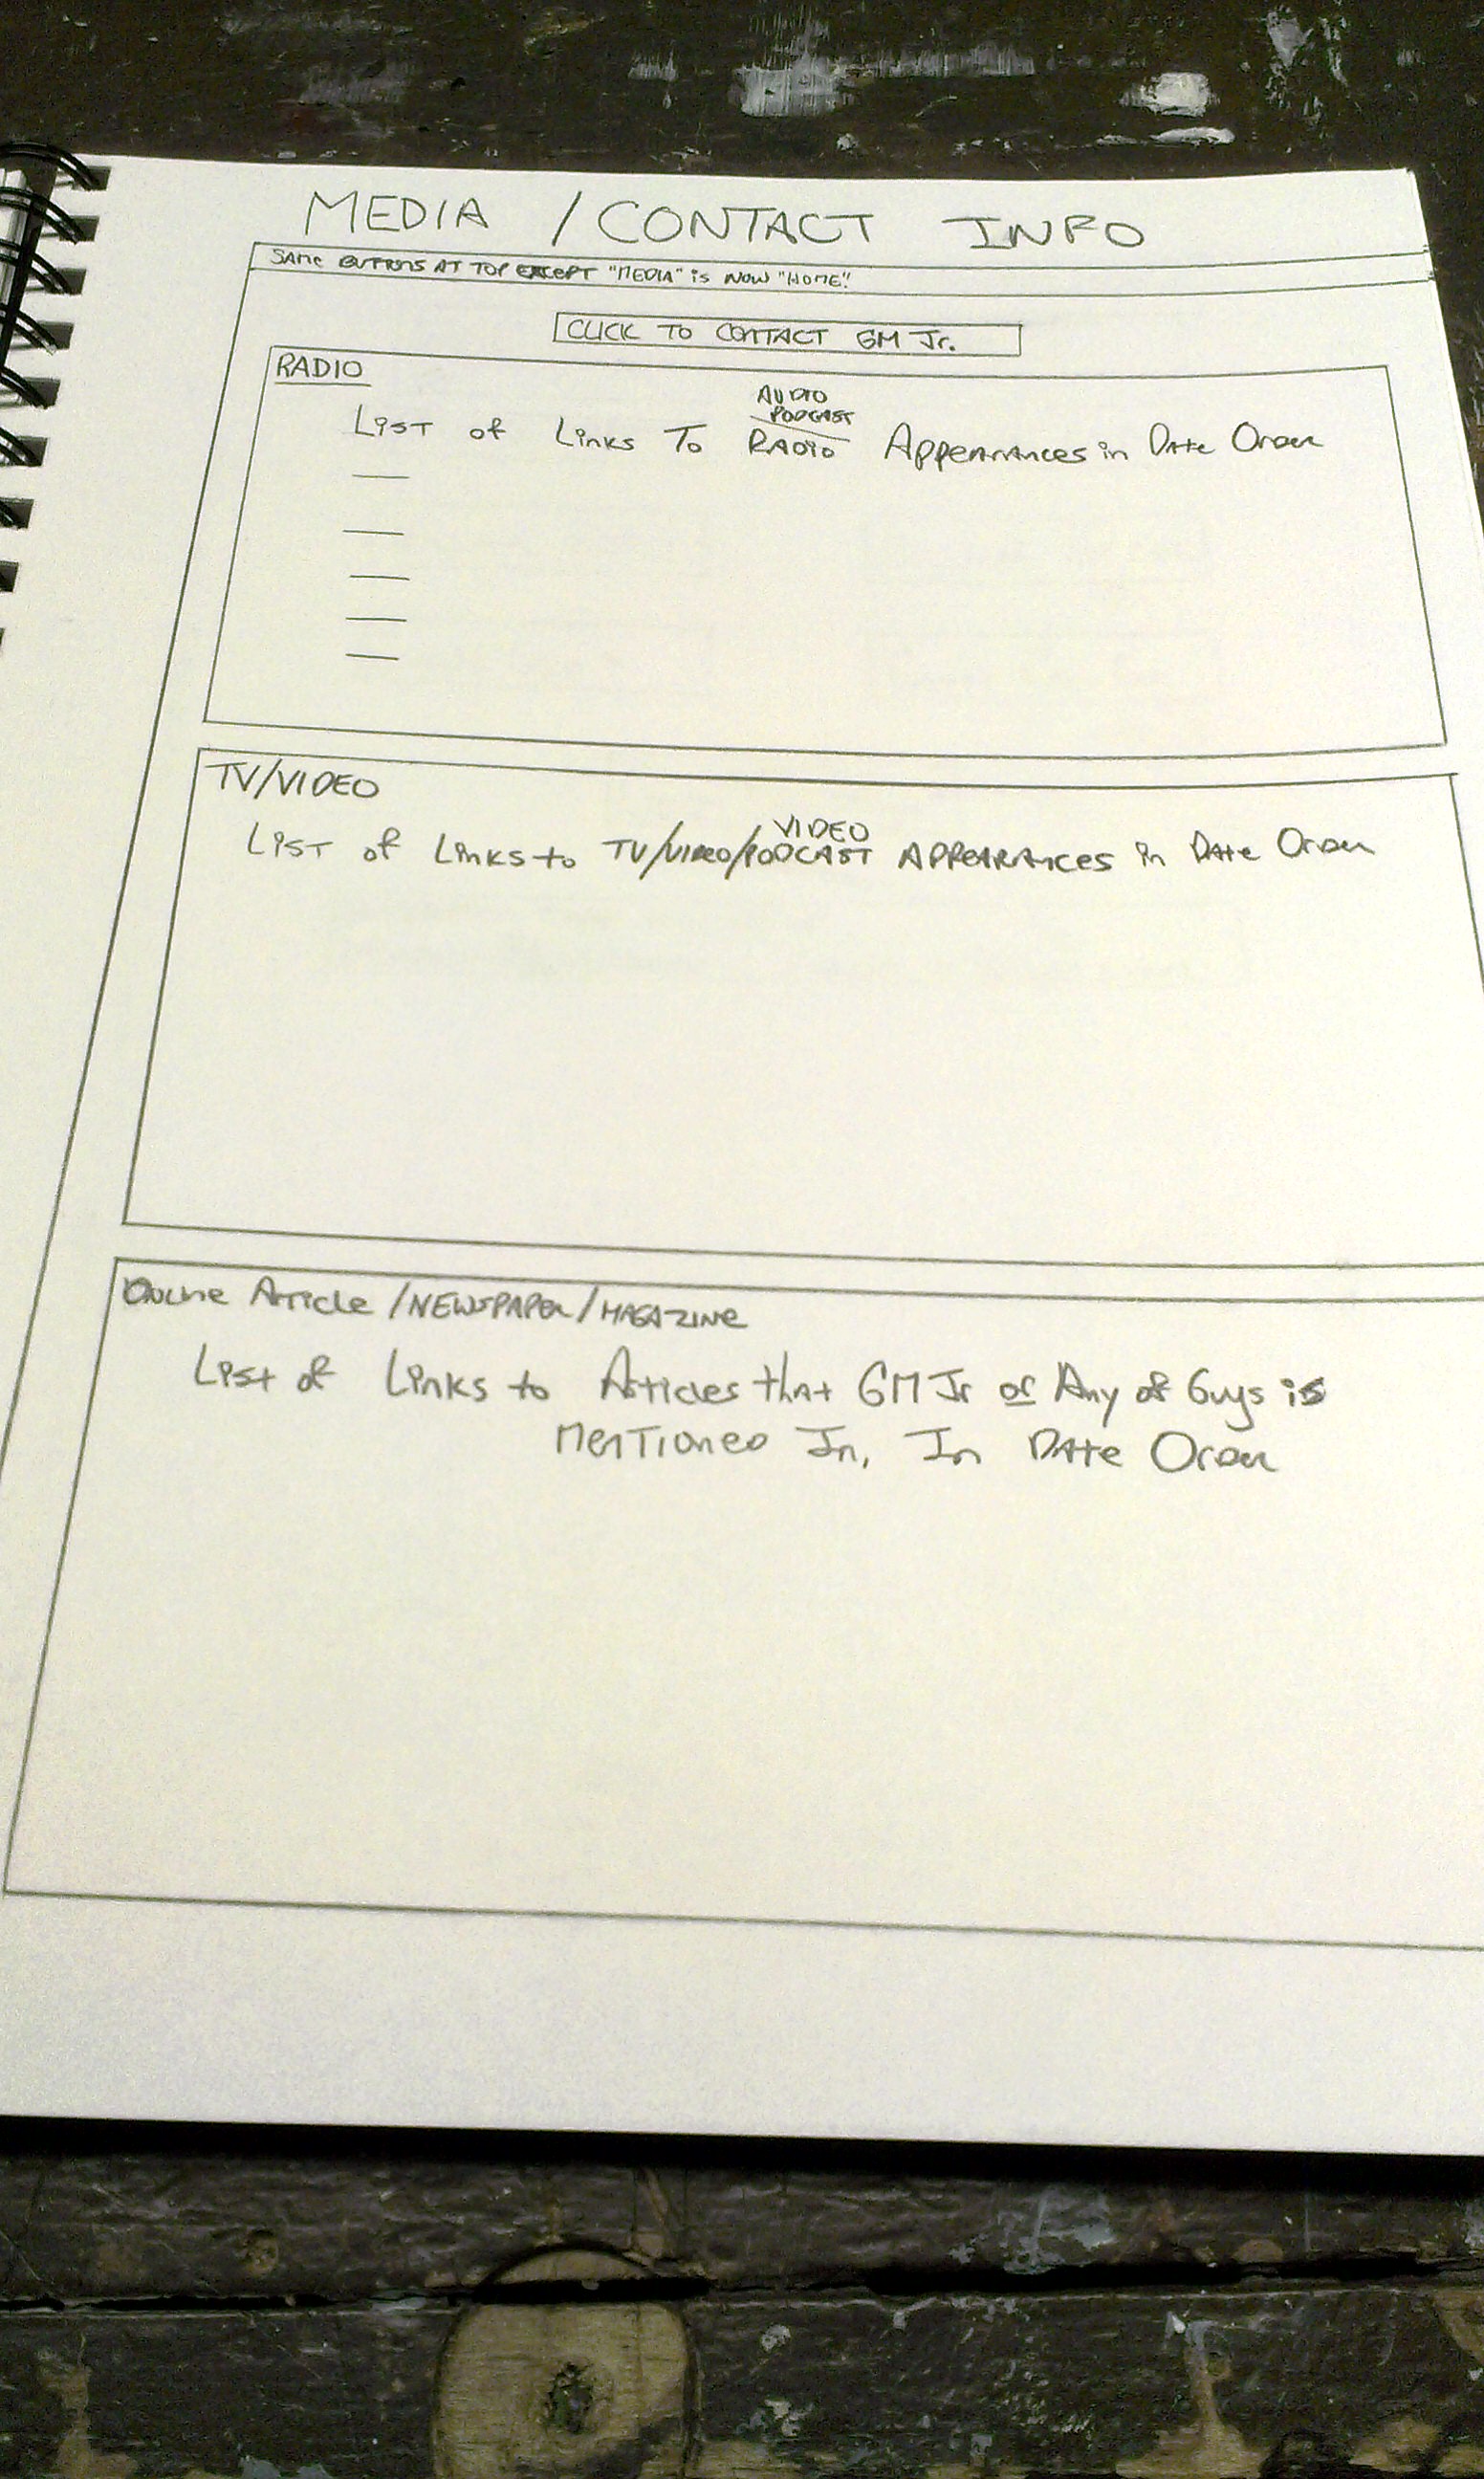 MEDIA / CONTACT INFO
SAME BUTTONS AT TOP EXCEPT "MEDIA" is NOW "HOME".
CLICK TO CONTACT GM Jr.
RADIO
AUDIO
PODCAST
LIST of Links To RADIO Appearances in Date Order
TV/VIDEO
VIDEO
LIST of Links to TV/VIDEO/PODCAST APPEARANCES in Date Order
Online Article / NEWSPAPER / MAGAZINE
List of Links to Articles that GM Jr or Any of Guys is
Mentioned In, In Date Order